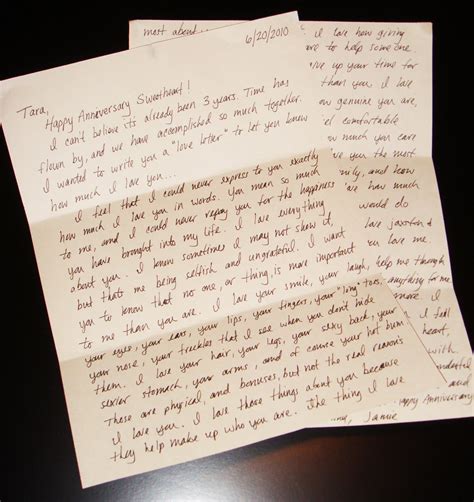 6/20/2010
Tara,
Happy Anniversary Sweetheart!
I can't believe its already been 3 years. Time has
flown by, and we have accomplished so much together.
I wanted to write you a "love letter" to let you know
how much I love you...
I feel that I could never express to you exactly
how much I love you in words. You mean so much
to me, and I could never repay you for the happiness
you have brought into my life. I love everything
about you. I know sometimes I may not show it,
but thats me being selfish and ungrateful. I want
you to know that no one, or thing, is more important
to me than you are. I love your smile, your laugh,
your eyes, your ears, your lips, your fingers, your "long" toes,
your nose, your freckles that I see when you don't hide
them. I love your hair, your legs, your sexy back, your
sexier stomach, your arms, and of course your hot bum.
Those are physical, and bonuses, but not the real reasons
I love you. I love those things about you because
they help make up who you are. The thing I love
most about
I love how giving
are to help someone
give up your time for
than you. I love
how genuine you are,
feel comfortable
how much you care
ve you the most
mily, and know
ve how much
would do
love jaxston &
en love me.
help me through
anything for me
more. I
I feel
heart,
with
onderful
and
Happy Anniversary
me, Jamie